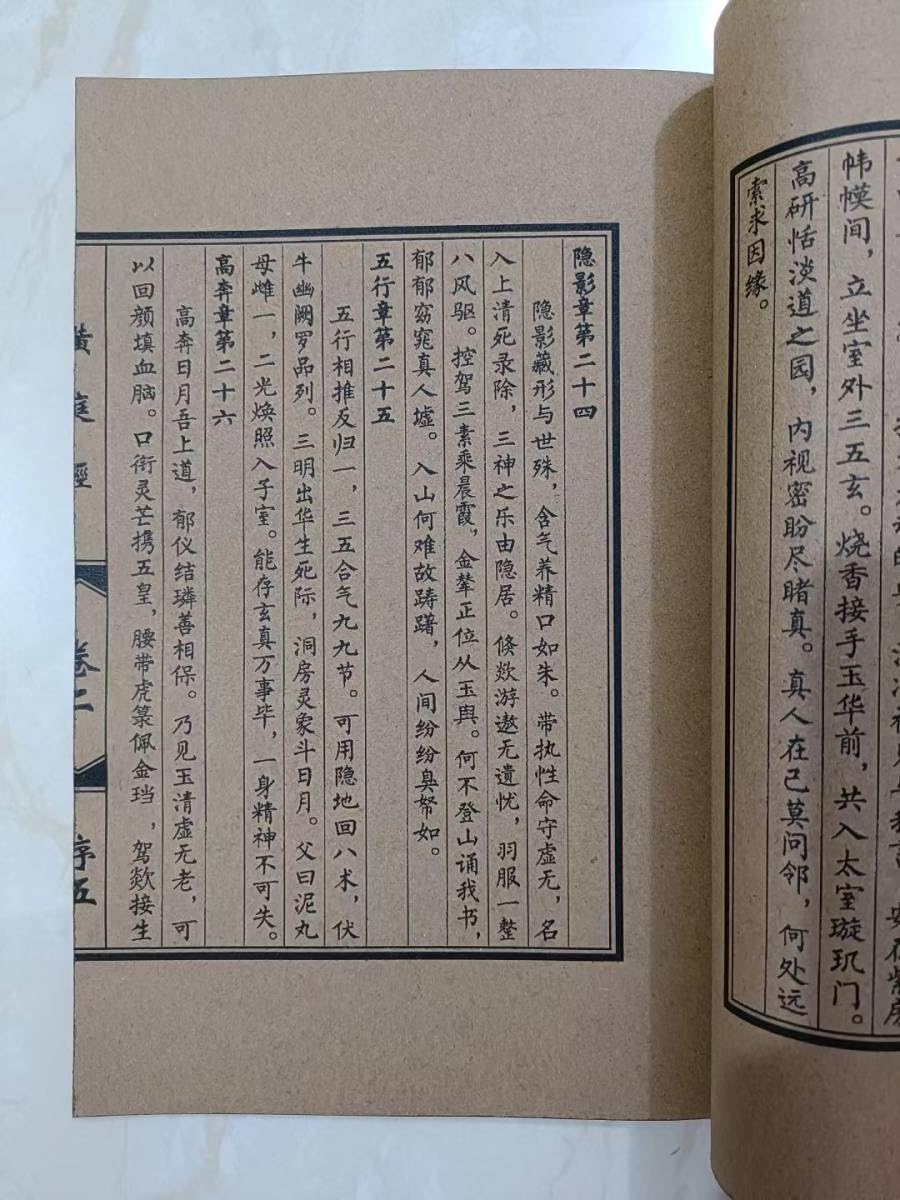 安在紫房
帏幙间，立坐室外三五玄。烧香接手玉华前，共入太室璇玑门。
高研恬淡道之园，内视密盼尽睹真。真人在己莫问邻，何处远
索求因缘。
隐影章第二十四
隐影藏形与世殊，含气养精口如朱。带执性命守虚无，名
入上清死录除，三神之乐由隐居。倏欻游遨无遗忧，羽服一整
八风驱。控驾三素乘晨霞，金辇正位从玉舆。何不登山诵我书，
郁郁窈窕真人墟。入山何难故踌躇，人间纷纷臭帤如。
五行章第二十五
五行相推反归一，三五合气九九节。可用隐地回八术，伏
牛幽阙罗品列。三明出华生死际，洞房灵象斗日月。父曰泥丸
母雌一，二光焕照入子室。能存玄真万事毕，一身精神不可失。
高奔章第二十六
高奔日月吾上道，郁仪结璘善相保。乃见玉清虚无老，可
以回颜填血脑。口衔灵芒携五皇，腰带虎箓佩金珰，驾欻接生
黄庭經
卷二
序五